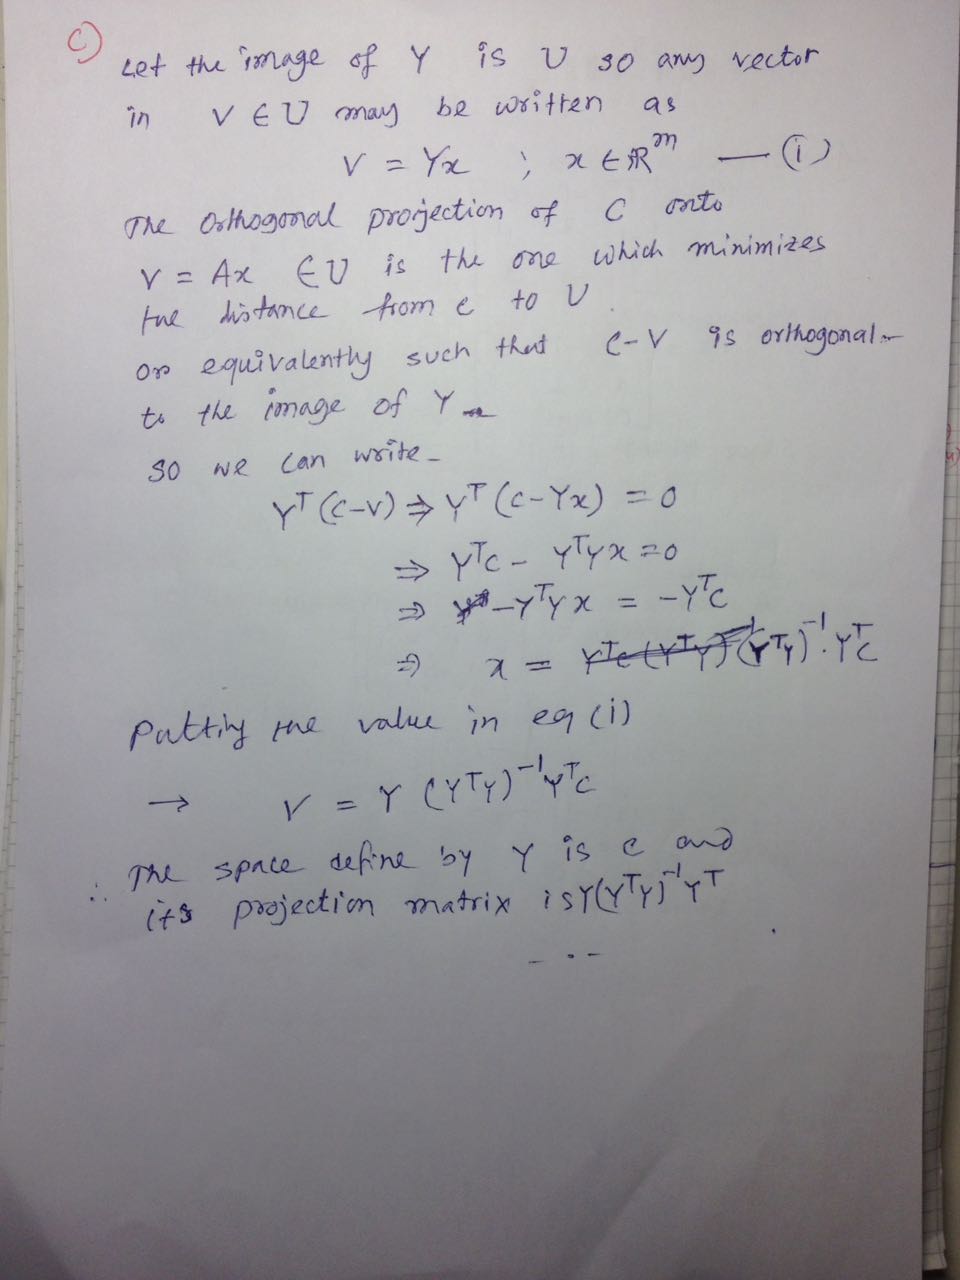 c)
Let the image of Y is U so any vector
in V ∈ U may be written as
V = Yx ; x ∈ ℝᵐ — (i)
The Orthogonal projection of C onto
V = Ax ∈ U is the one which minimizes
the distance from c to U.
or equivalently such that C-V is orthogonal
to the image of Y
so we can write -
Yᵀ(C-V) ⇒ Yᵀ(C-Yx) = 0
⇒ YᵀC - YᵀYx = 0
⇒ -YᵀYx = -YᵀC
⇒ x = (YᵀY)⁻¹.YᵀC
Putting the value in eq (i)
→ V = Y (YᵀY)⁻¹YᵀC
∴ The space define by Y is C and
its projection matrix is Y(YᵀY)⁻¹Yᵀ